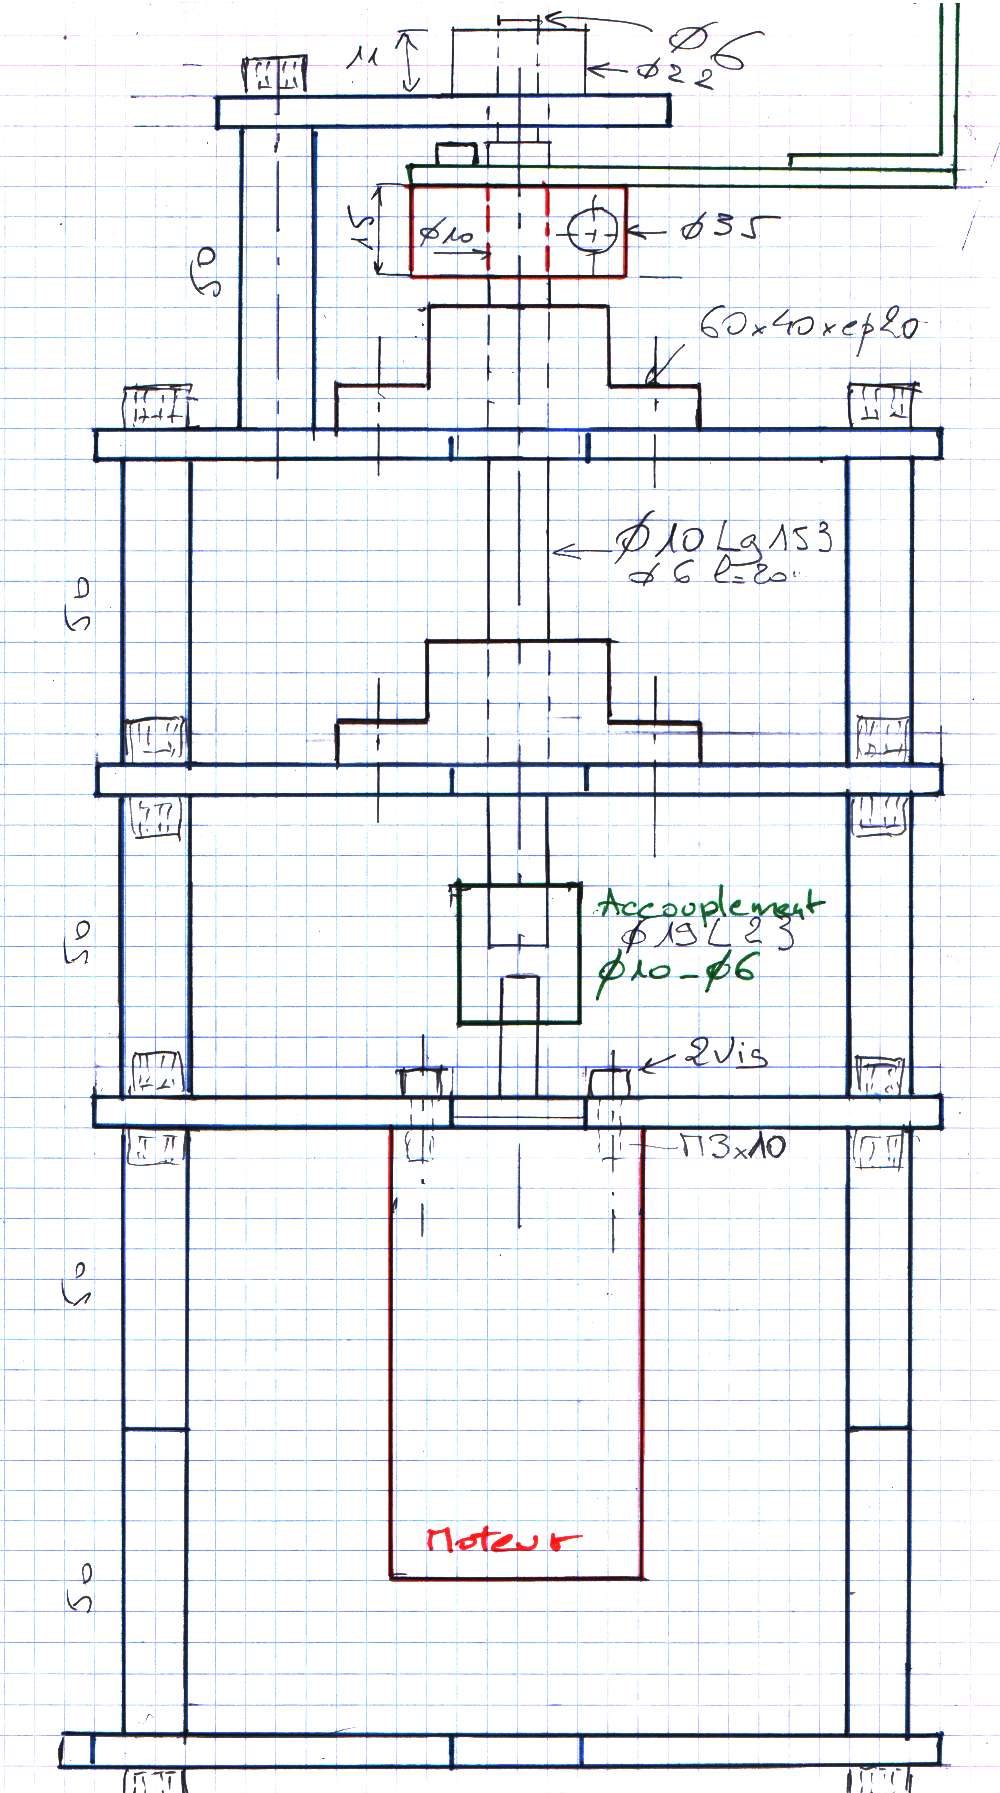 11
Ø6
Ø22
15
Ø10
Ø35
50
60x40xep20
Ø10 Lg 153
Ø6 l=20
50
Accouplement
Ø19 L 23
Ø10-Ø6
50
2 Vis
M3x10
50
Moteur
50